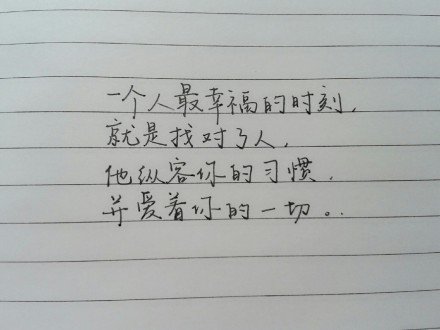 一个人最幸福的时刻，
就是找对了人，
他纵容你的习惯，
并爱着你的一切。..